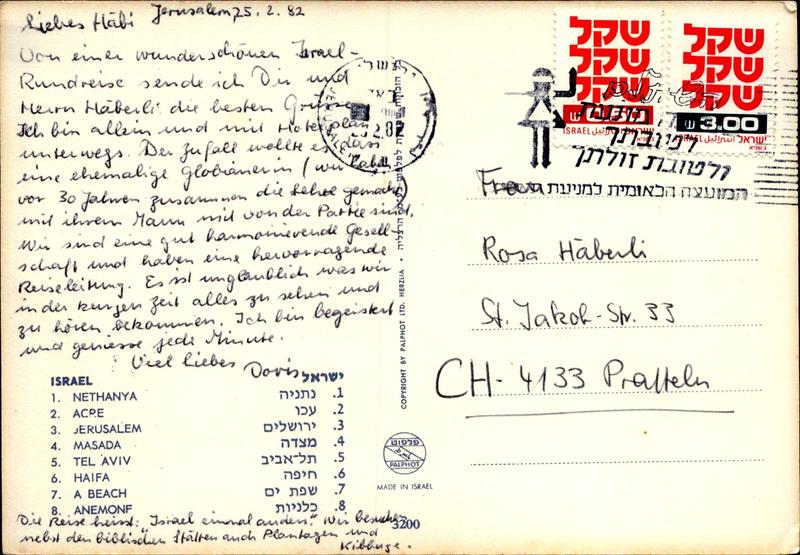 Liebes Häbi Jerusalem 25.2.82
Von einer wunderschönen Israel-
Rundreise sende ich Dir und
Herrn Häberli die besten Grüsse.
Ich bin allein und mit Hotelplan
unterwegs. Der Zufall wollte es, dass
eine ehemalige Globianerin (wir haben
vor 30 Jahren zusammen die Lehre gemacht
mit ihrem Mann mit von der Partie sind.
Wir sind eine gut harmonierende Gesell-
schaft und haben eine hervorragende
Reiseleitung. Es ist unglaublich was wir
in der kurzen Zeit alles zu sehen und
zu hören bekommen. Ich bin begeistert
und geniesse jede Minute.
Viel Liebes Doris
ISRAEL ישראל
1. NETHANYA נתניה .1
2. ACRE עכו .2
3. JERUSALEM ירושלים .3
4. MASADA מצדה .4
5. TEL AVIV תל-אביב .5
6. HAIFA חיפה .6
7. A BEACH שפת ים .7
8. ANEMONE כלניות .8
Die Reise heisst: "Israel einmal anders". Wir besuchen
nebst den biblischen Stätten auch Plantagen und
Kibbuze.
3200
COPYRIGHT BY PALPHOT LTD. HERZLIA
פלפוט
PALPHOT
MADE IN ISRAEL
שקל שקל
שקל שקל
שקל שקל
3.00
ISRAEL اسرائيل ישראל
ISRAEL اسرائيل ישראל
2.82
לטובתך
ולטובת זולתך
המועצה הלאומית למניעת
Frau
Rosa Häberli
St. Jakob-Str. 33
CH-4133 Pratteln